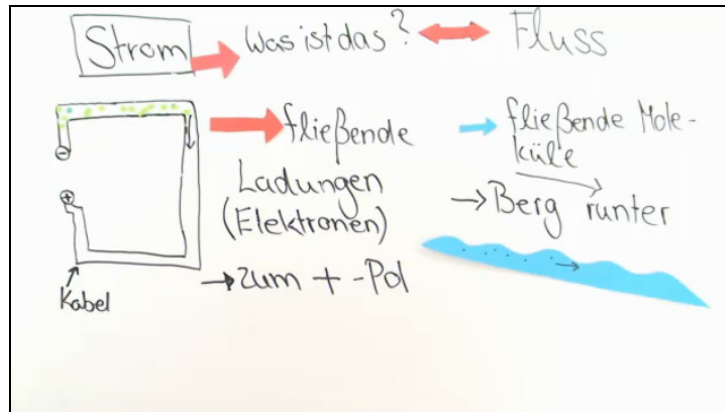 Strom
Was ist das?
Fluss
−
+
Kabel
fließende
Ladungen
(Elektronen)
→ zum + -Pol
fließende Mole-
küle
→ Berg runter